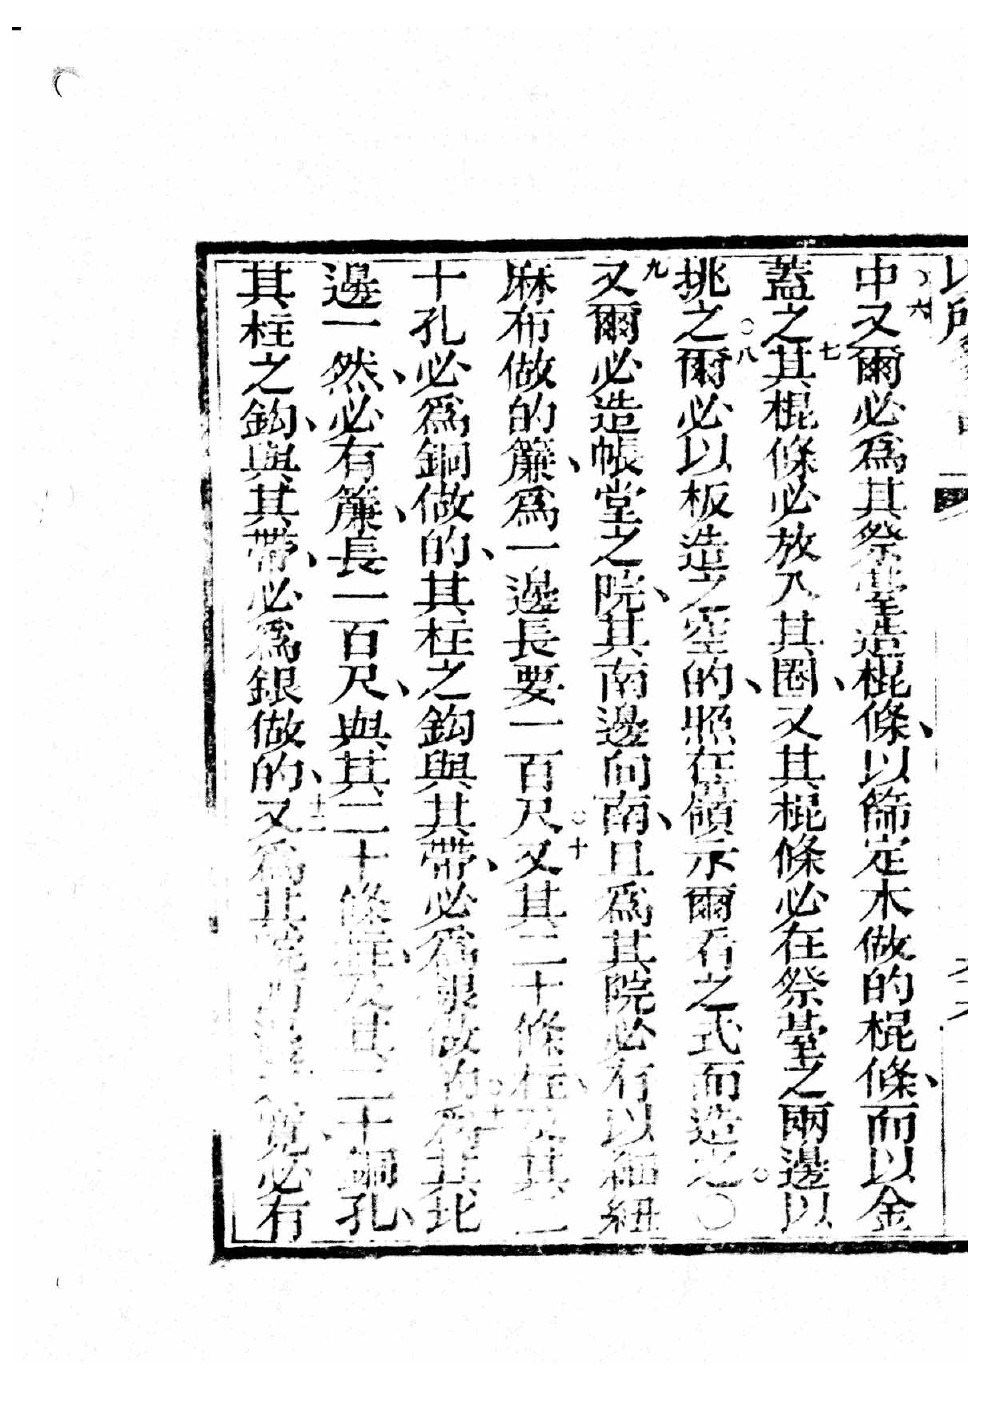 中○六又爾必為其祭臺造棍條、以篩定木做的棍條、而以金
蓋之七其棍條必放入其圈、又其棍條必在祭臺之兩邊以
挑之○八爾必以板造之空的、照在嶺示爾看之式而造之○○
九又爾必造帳堂之院、其南邊向南、且為其院必有以細紐
麻布做的簾、為一邊長要一百尺○十又其二十條柱、及其二
十孔必為銅做的、其柱之鈎與其帶、必為銀做的○十一為其北
邊一然、必有簾、長一百尺、與其二十條柱、及其二十銅孔、
其柱之鈎、與其帶、必為銀做的、十二又為其院西邊、寬必有